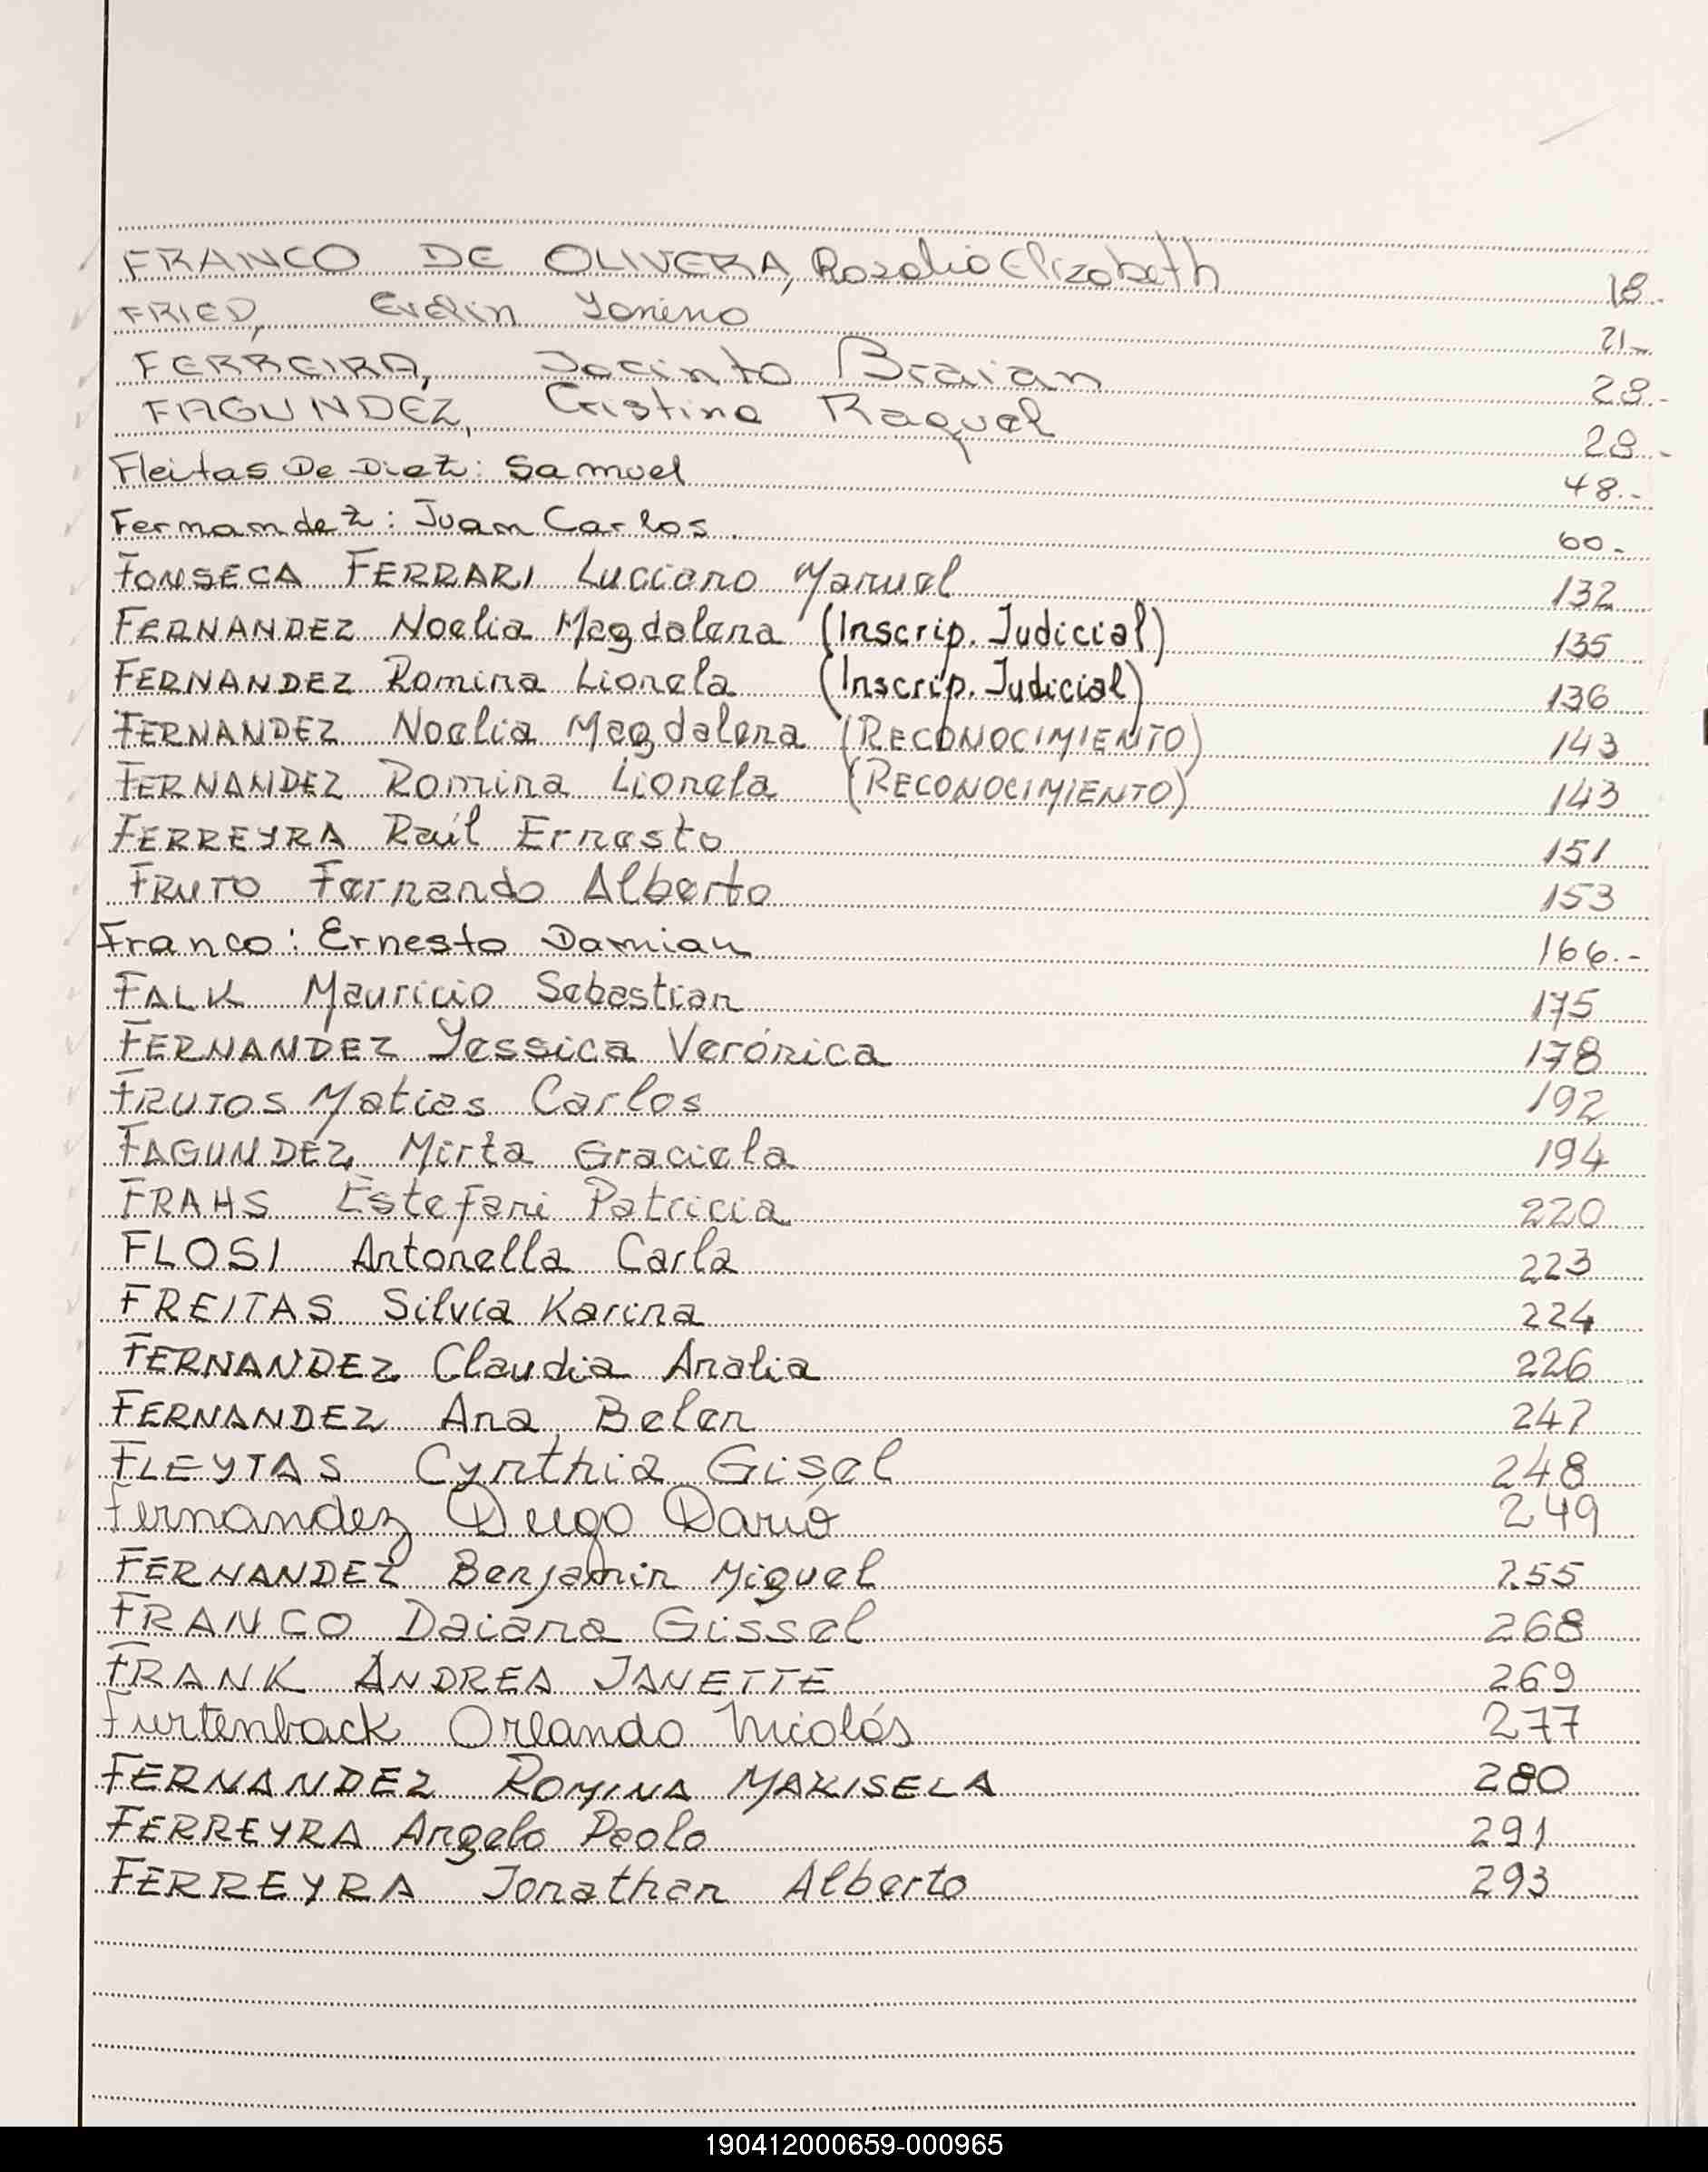 FRANCO DE OLIVERA, Rosalia Elizabeth 18.-
FRIED, Evelin Yanina 21.-
FERREIRA, Jacinto Braian 28.-
FAGUNDEZ, Cristina Raquel 28.-
Fleitas De Diez: Samuel 48.-
Fernandez: Juan Carlos. 60.-
FONSECA FERRARI Luciano Manuel 132
FERNANDEZ Noelia Magdalena (Inscrip. Judicial) 135
FERNANDEZ Romina Lionela (Inscrip. Judicial) 136
FERNANDEZ Noelia Magdalena (RECONOCIMIENTO) 143
FERNANDEZ Romina Lionela (RECONOCIMIENTO) 143
FERREYRA Raúl Ernesto 151
FRUTO Fernando Alberto 153
Franco: Ernesto Damian 166.-
FALK Mauricio Sebastian 175
FERNANDEZ Yessica Verónica 178
FRUTOS Matias Carlos 192
FAGUNDEZ Mirta Graciela 194
FRAHS Estefani Patricia 220
FLOSI Antonella Carla 223
FREITAS Silvia Karina 224
FERNANDEZ Claudia Analia 226
FERNANDEZ Ana Belen 247
FLEYTAS Cynthia Gisel 248
Fernandez Diego Darío 249
FERNANDEZ Benjamin Miguel 255
FRANCO Daiana Gissel 268
FRANK ANDREA JANETTE 269
Furtenback Orlando Nicolás 277
FERNANDEZ ROMINA MARISELA 280
FERREYRA Angelo Paolo 291
FERREYRA Jonathan Alberto 293
190412000659-000965